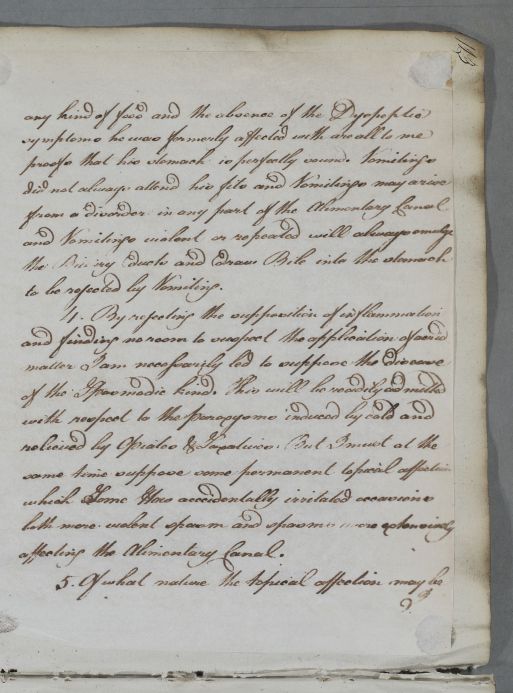 any kind of food and the absence of the Dyspeptic
symptoms he was formerly affected with are all to me
proofs that his stomach is perfectly sound. Vomitings
did not always attend his fits and Vomitings may arise
from a disorder in any part of the Alimentary Canal
and Vomitings violent or repeated will always emulge
the Biliary ducts and draw Bile into the stomach
to be rejected by Vomiting.
4. By rejecting the supposition of inflammation
and finding no room to suspect the application of acrid
matter I am necessarily led to suppose the disease
of the Spasmodic kind. This will be readily admitted
with respect to the paroxysms induced by cold and
relieved by Opiates & Laxatives. But I must at the
same time suppose some permanent topical affection
which Some accidentally irritated occasions
both more violent spasm and spasms more extensively
affecting the Alimentary Canal.
5. Of what nature the topical affection may be